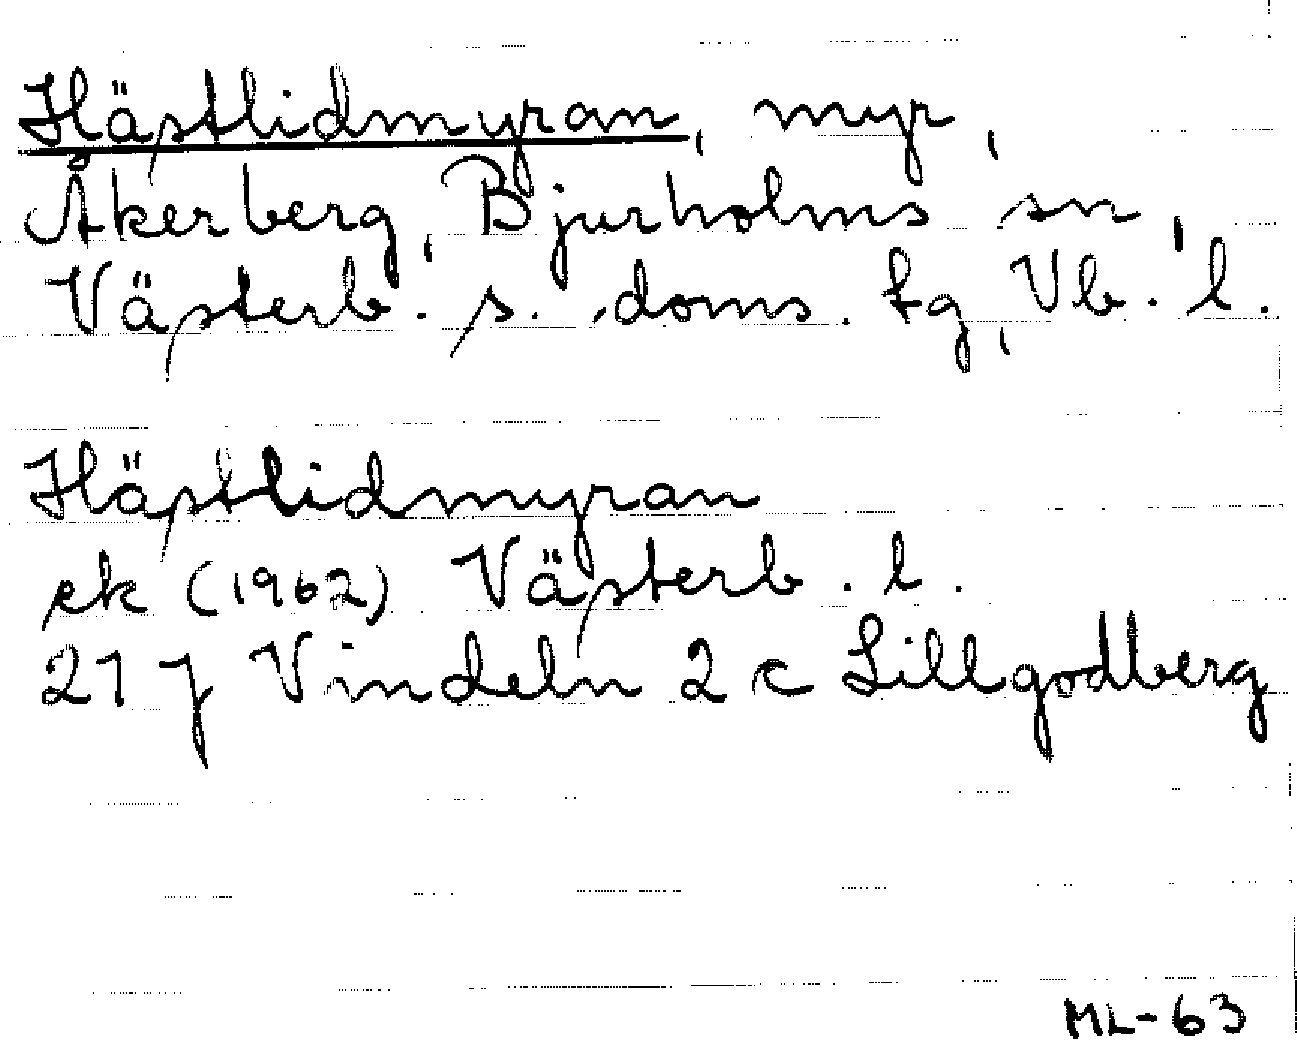 Hästlidmyran, myr,
Åkerberg, Bjurholms sn,
Västerb. s. doms. tg, Vb. l.
Hästlidmyran
ek (1962) Västerb. l.
21 J Vindeln 2 c Lillgodberg
ML-63